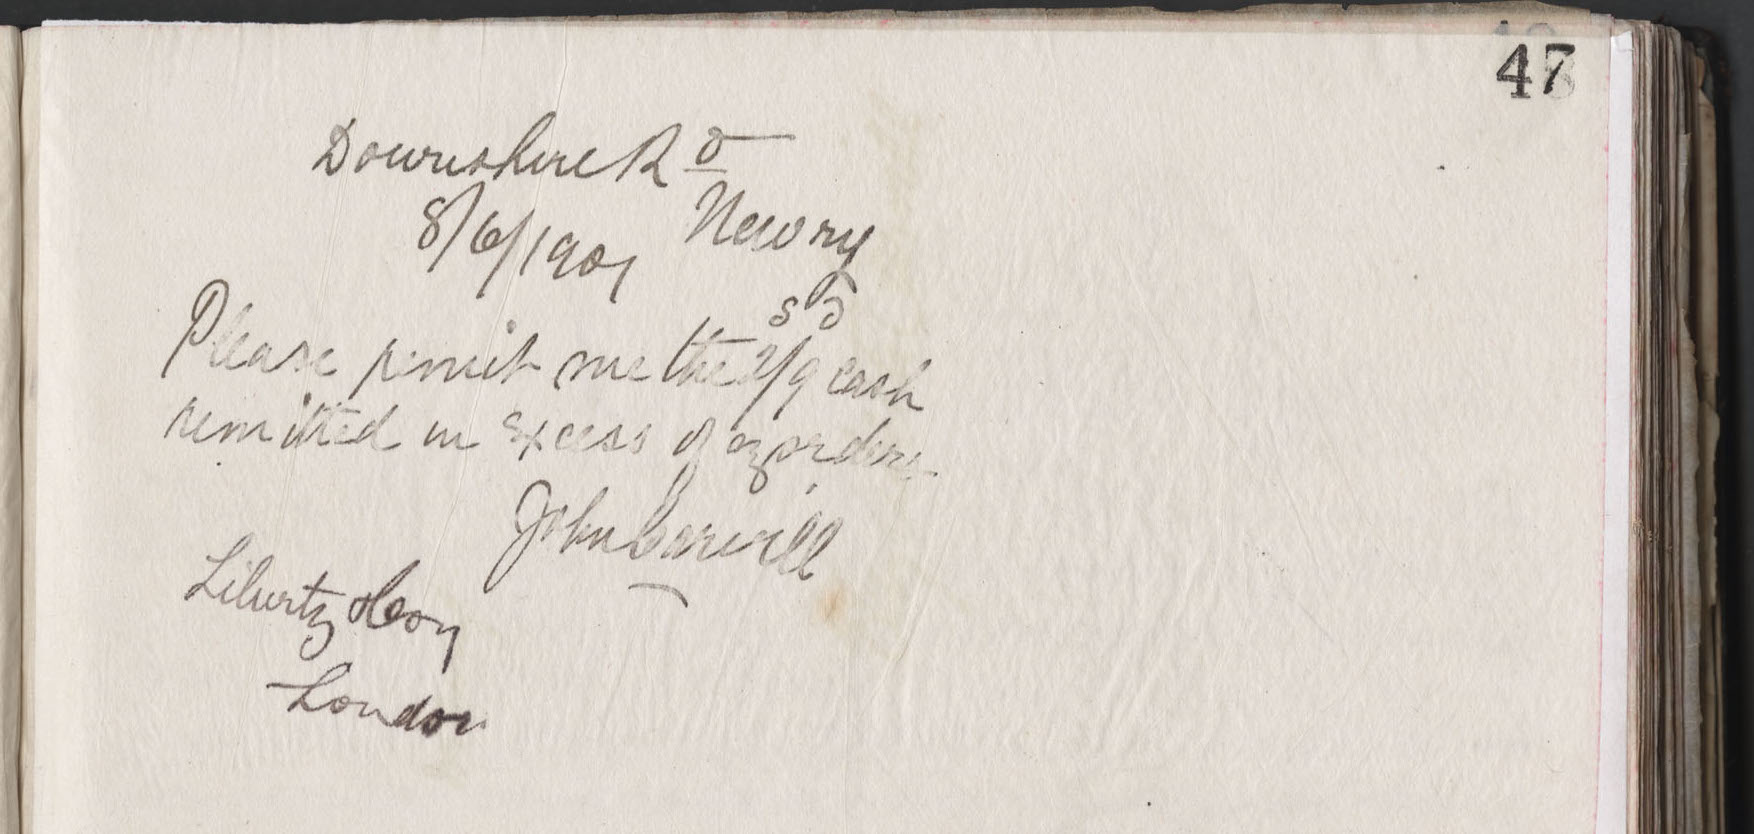 47
Downshire Rd
Newry
8/6/1901
s d
Please remit me the 2/9 cash
remitted in excess of my order
John Carvill
Liberty & Coy
London